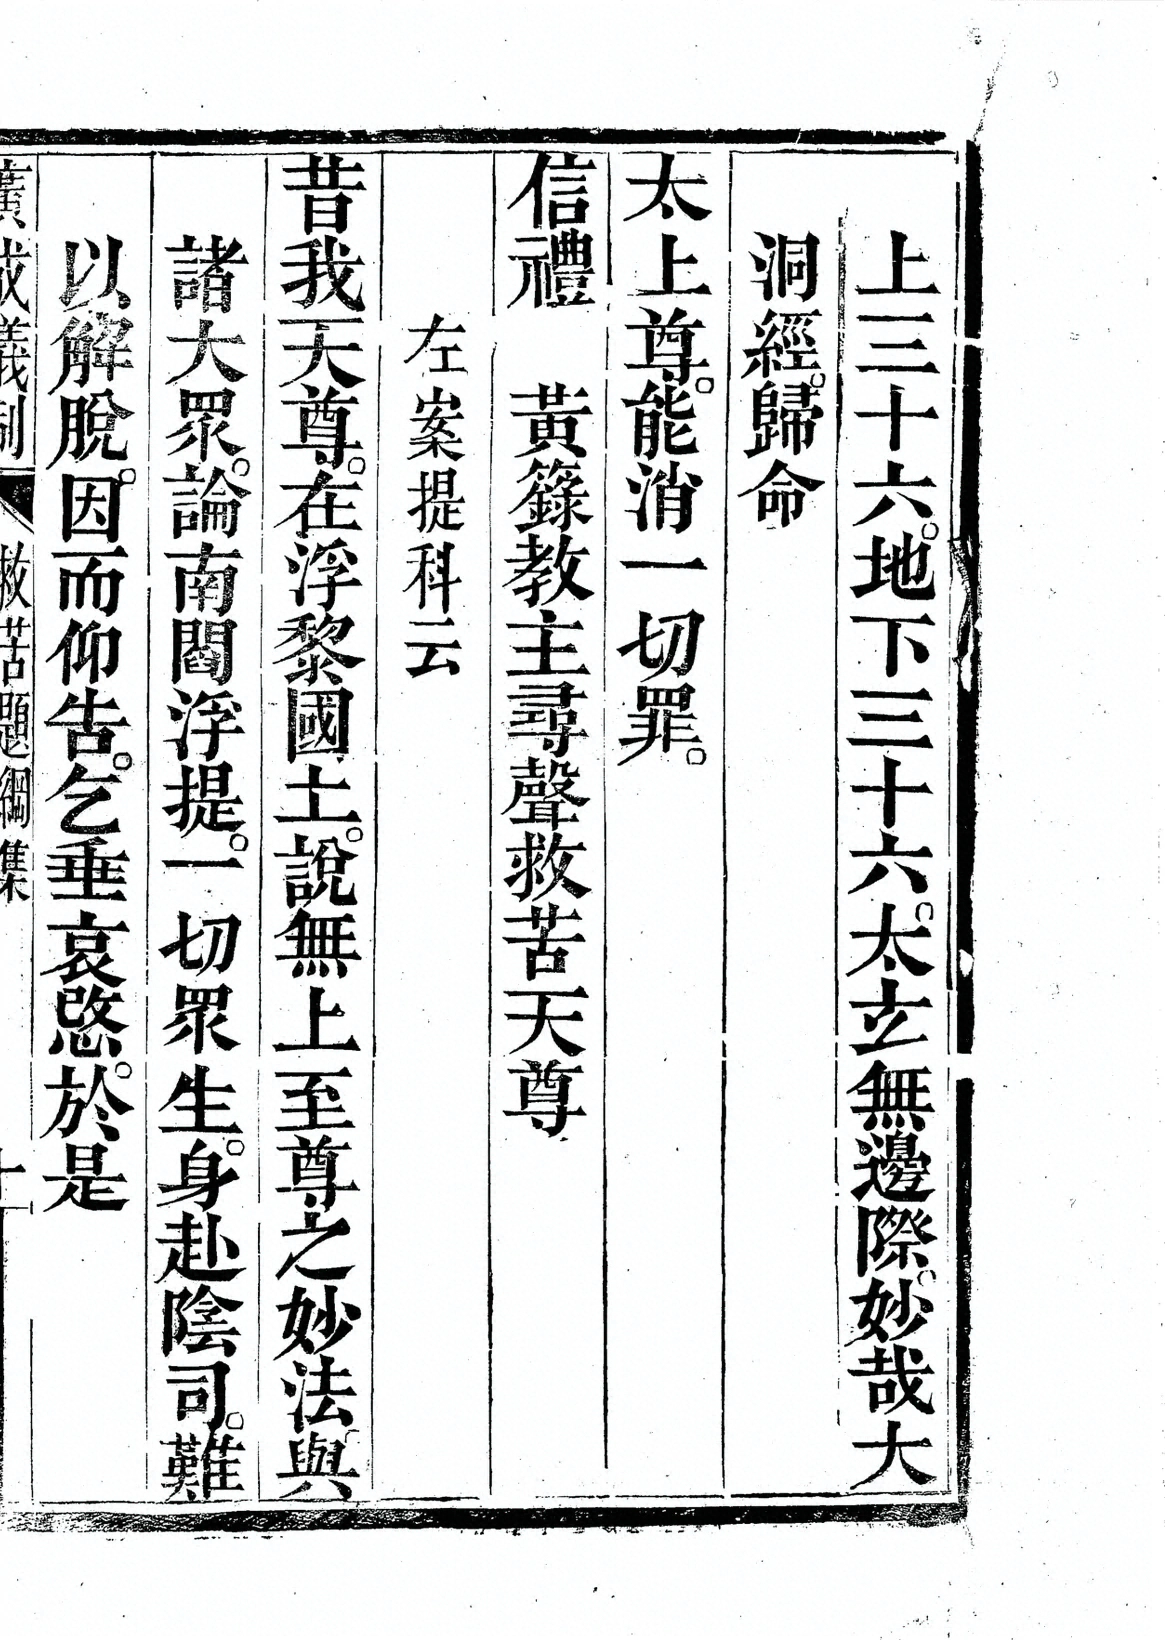 上三十六。地下三十六。太玄無邊際。妙哉大
洞經。歸命
太上尊。能消一切罪。
信禮　黃籙教主尋聲救苦天尊
左案提科云
昔我天尊。在浮黎國土。說無上至尊之妙法。與
諸大眾。論南閻浮提。一切眾生。身赴陰司。難
以解脫。因而仰告。乞垂哀愍。於是
廣成儀制　救苦題綱集